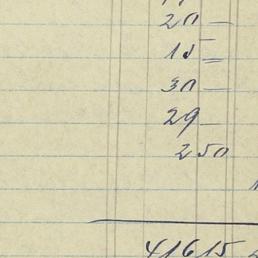 20 —
18 =
30 —
29 —
2 50
41615